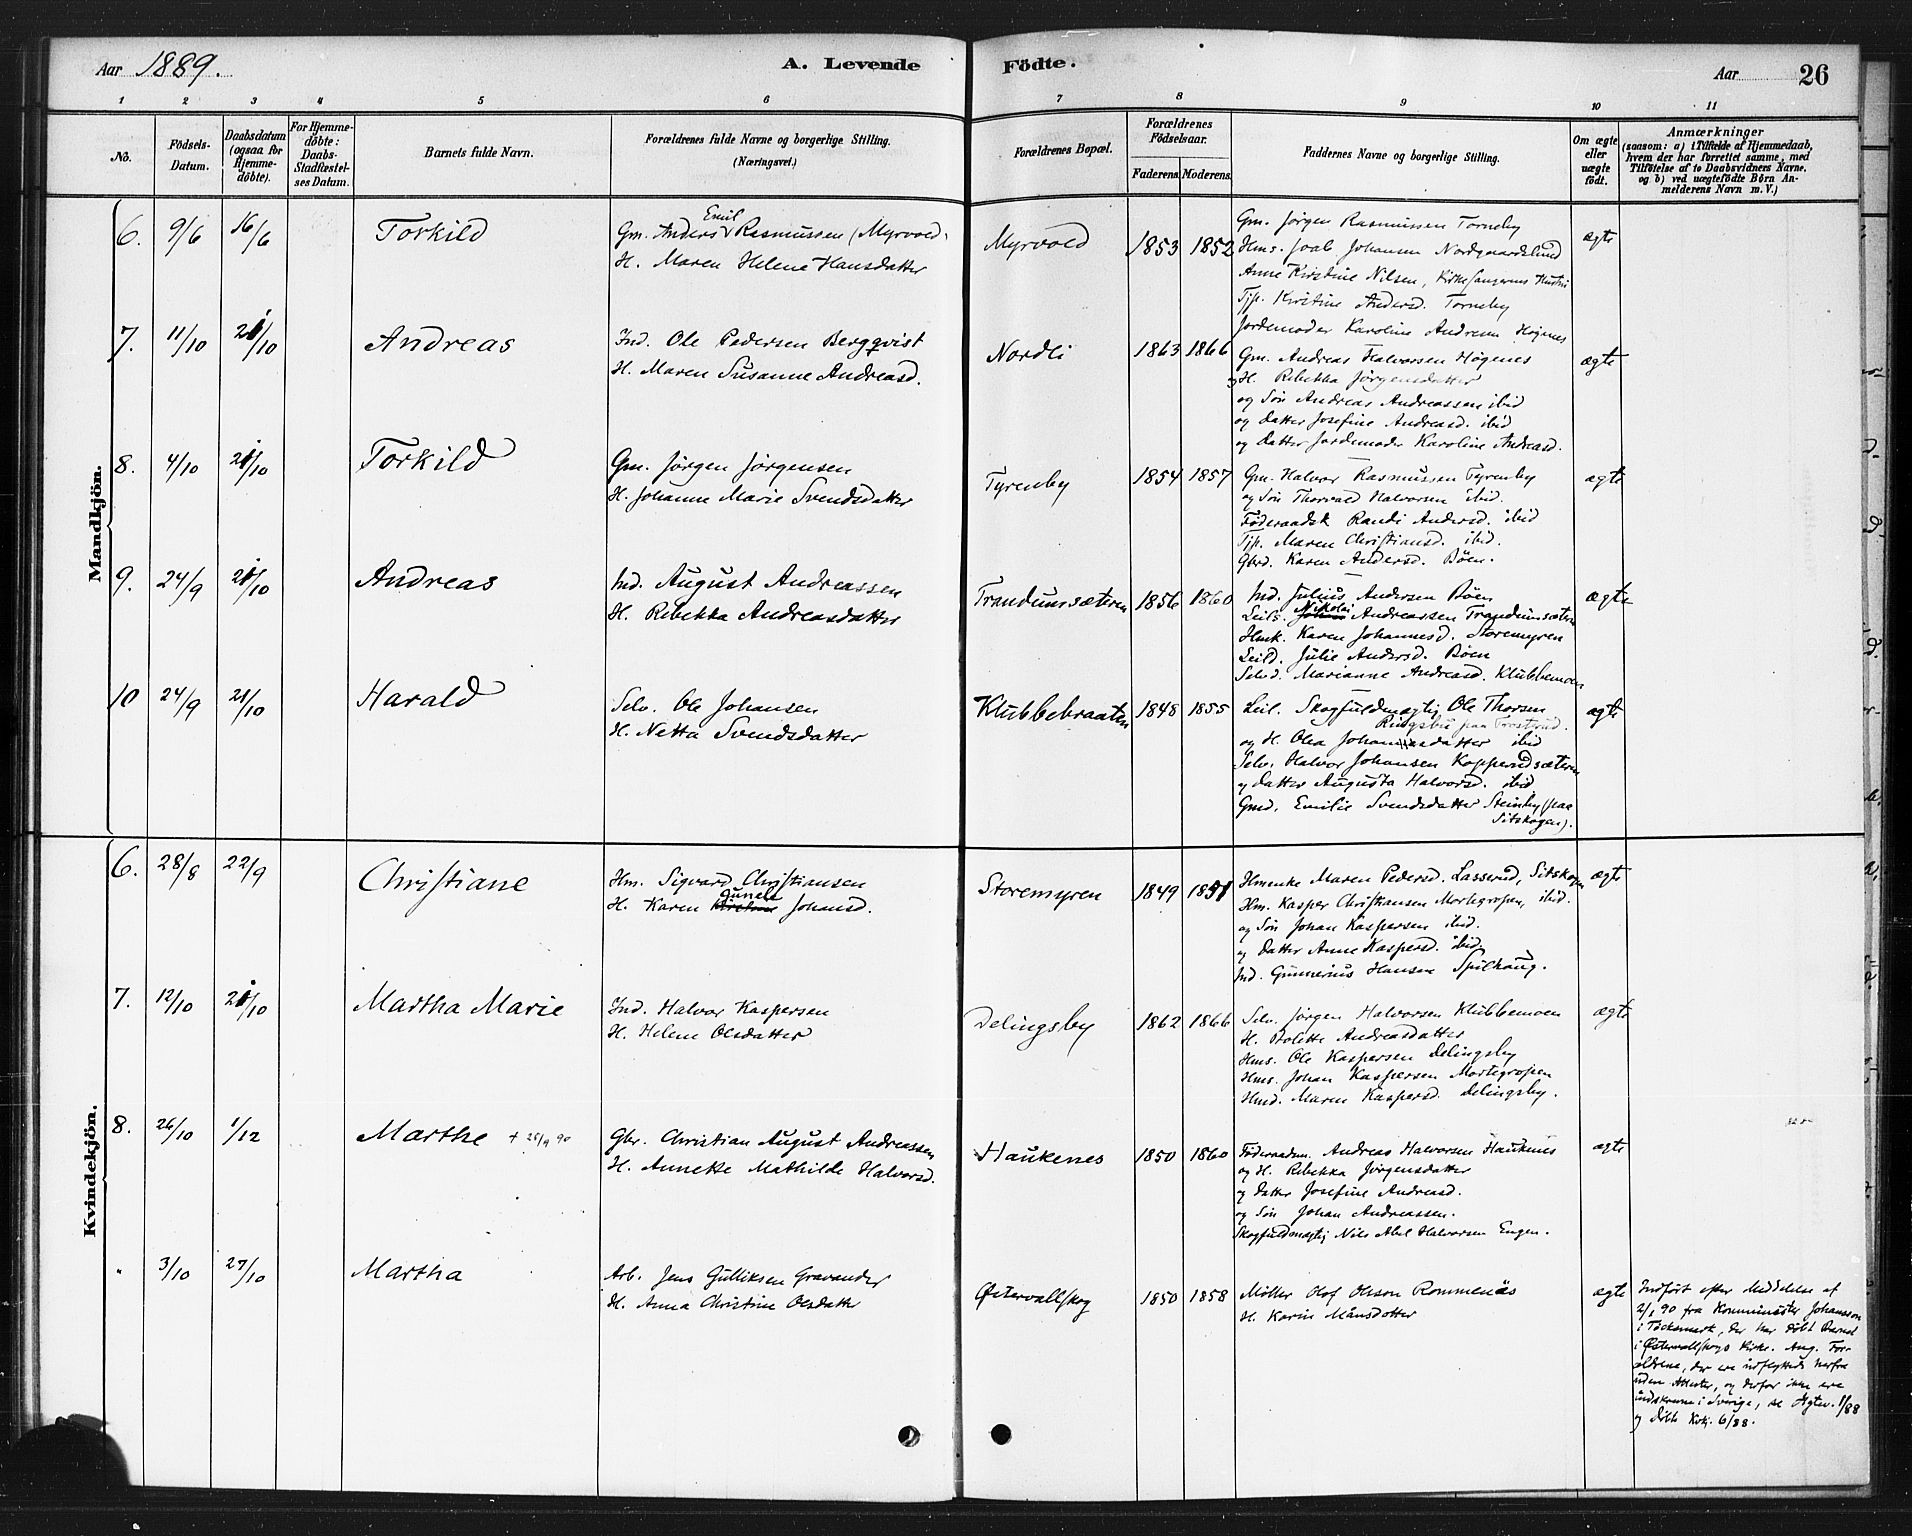 Aar 1889.
A. Levende
Födte.
Aar
26
1 2 3 4 5 6 7 8 9 10 11
No.
Födsels-
Datum.
Daabsdatum
(ogsaa for
Hjemme-
döbte).
For Hjemme-
döbte:
Daabs-
Stadfæstel-
ses Datum.
Barnets fulde Navn.
Forældrenes fulde Navne og borgerlige Stilling.
(Næringsvei.)
Forældrenes Bopæl.
Forældrenes
Födselsaar.
Faderens. Moderens.
Faddernes Navne og borgerlige Stilling.
Om ægte
eller
uægte
födt.
Anmærkninger
(saasom: a) i Tilfælde af Hjemmedaab,
hvem der har forrettet samme, med
Tilföielse af to Daabsvidners Navne,
og b) ved uægtefödte Börn An-
melderens Navn m. V.)
Mandkjön.
6. 9/6 16/6 Torkild
Emil
Gm. Anders Rasmussen (Myrvold.
H. Maren Helene Hansdatter
Myrvold 1853 1852
Gm. Jørgen Rasmussen Torneby
Hms. Joab Johansen Nordgaardslund
Anne Kirstine Nilsen, Kirkesangerens Hustru
Tjp. Kirstine Andersd. Torneby
Jordemoder Karoline Andreasen Høgnes
ægte
7. 11/10 21/10 Andreas
Ind. Ole Pedersen Bergqvist
H. Maren Susanne Andreasd.
Nordli 1863 1866
Gm. Andreas Halvorsen Høgenes
og H. Rebekka Jørgensdatter
og Søn Andreas Andreassen ibid
og datter Josefine Andreasd. ibid
og datter Jordemoder Karoline Andreasd.
ægte
8. 4/10 21/10 Torkild
Gm. Jørgen Jørgensen
H. Johanne Marie Svendsdatter
Tyrenby 1854 1857
Gm. Halvor Rasmussen Tyrenby
og Søn Thorvald Halvorsen ibid.
Föderaadsk Randi Andersd. ibid
Tjp. Maren Christiansd. ibid.
Gbrd. Karen Andersd. Böen.
ægte
9. 24/9 21/10 Andreas
Ind. August Andreassen
H. Rebekka Andreasdatter
Trandumsæteren 1856 1860
Ind. Julius Andersen Böen
Leils. Nikolai Andreassen Trandumsæteren
Hmk. Karen Johannesd. Storemyren
Leild. Julie Andersd. Böen
Selvd. Marianne Andreasd. Klubbemoen
ægte
10 24/9 21/10 Harald
Selv. Ole Johansen
H. Netta Svendsdatter
Klubbebraaten 1848 1855
Leil. Skogfuldmægtig Ole Thorsen
Ringsbu paa Trostrud.
og H. Olea Johannesdatter ibid
Selv. Halvor Johansen Kopperudsæteren
og datter Augusta Halvorsd. ibid
Gmd. Emilie Svendsdatter Steinby (paa
Sitskogen).
ægte
Kvindekjön.
6. 28/8 22/9 Christiane
Hm. Sigvard Christiansen
H. Karen Gunelle Johansd.
Storemyren 1849 1851
Hmenke Maren Pedersd. Lasserud, Sitskogen
Hm. Kasper Christiansen Mortegropen, ibid.
og Søn Johan Kaspersen ibid.
og datter Anne Kaspersd. ibid
Ind. Gunnerius Hansen Spilhaug.
ægte
7. 12/10 21/10 Martha Marie
Ind. Halvor Kaspersen
H. Helene Olsdatter
Delingsby 1862 1866
Selv. Jørgen Halvorsen Klubbemoen
H. Bolette Andreasdatter
Hms. Ole Kaspersen Delingsby
Hms. Johan Kaspersen Mortegropen
Hmd. Maren Kaspersd. Delingsby.
ægte
8. 26/10 1/12 Marthe + 25/9 90
Gbr. Christian August Andreassen
H. Annette Mathilde Halvorsd.
Haukenes 1850 1860
Föderaadsm. Andreas Halvorsen Haukenes
og H. Rebekka Jørgensdatter
og datter Josefine Andreasd.
og Søn Johan Andreassen.
Skogfuldmægtig Nils Abel Halvorsen Engen.
ægte
" 3/10 27/10 Martha
Arb. Jens Gulliksen Gravander
H. Anna Christine Olsdatter
Østervallskog 1850 1858
Møller Olof Olsson Rommenäs
H. Karin Månsdotter
ægte
Indført efter Meddelelse af
2/1 90 fra Komminister Johansson
i Töcksmark, der har døbt Barnet
i Østervallskogs Kirke. Ang. For-
ældrene, der ere udflyttede herfra
uden Attester, og derfor ikke ere
indskrevne i Sverige, se Ægtev. 1/88
og døbte Kvk. 6/88.